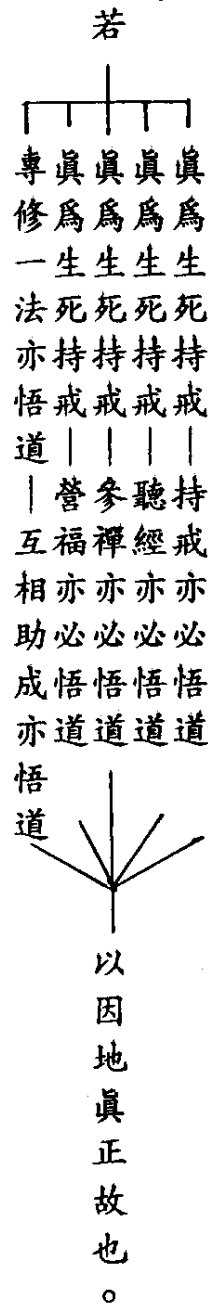 若
眞爲生死持戒—持戒亦必悟道
眞爲生死持戒—聽經亦必悟道
眞爲生死持戒—參禪亦必悟道
眞爲生死持戒—營福亦必悟道
專修一法亦悟道—互相助成亦悟道
以因地眞正故也。